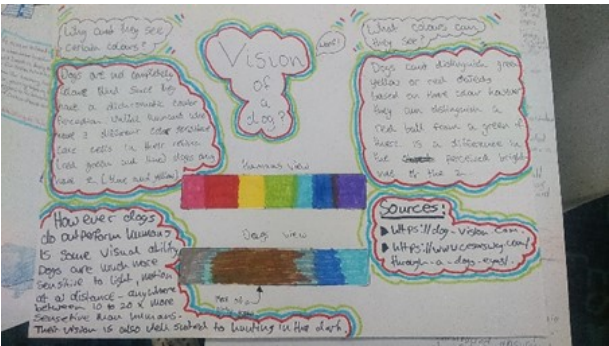 Why cant they see
certain colours?
Dogs are not completely
colour blind since they
have a dichromatic colour
perception. Unlike humans who
have 3 different sensitive
cone cells in their retina
(red green and blue) dogs only
have 2 (blue and yellow)
Vision
of
a
dog?
What colours can
they see?
Dogs cant distinguish green
yellow or red objects
based on there colour however
they can distinguish a
red ball from a green if
there is a difference in
the perceived bright
ness of the 2.
Humans view
Dogs view
However dogs
do outperform humans
is some visual ability
Dogs are much more
sensitive to light, motion
at a distance - anywhere
between 10 to 20 x more
sensetive than humans.
Their vision is also well suited to hunting in the dark.
Sources:
https://dog-vision.com
https://www.cesarsway.com/
through-a-dogs-eyes/